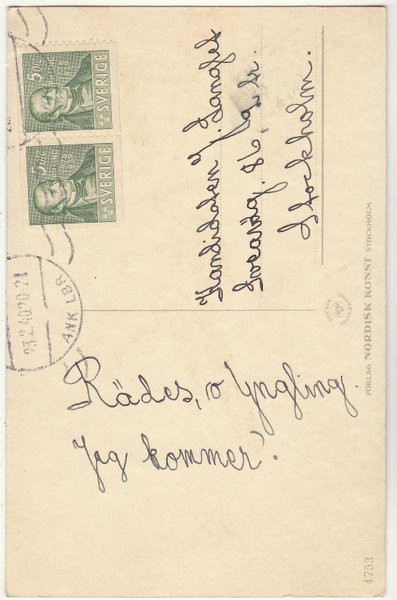 Rädes, o Yngling.
Jag kommer!
Kandidaten
Sveaväg. 86
Stockholm.
5 ÖRE
SVERIGE
5 ÖRE
SVERIGE
23.2.40
ANK LBR
FÖRLAG NORDISK KONST STOCKHOLM
4753